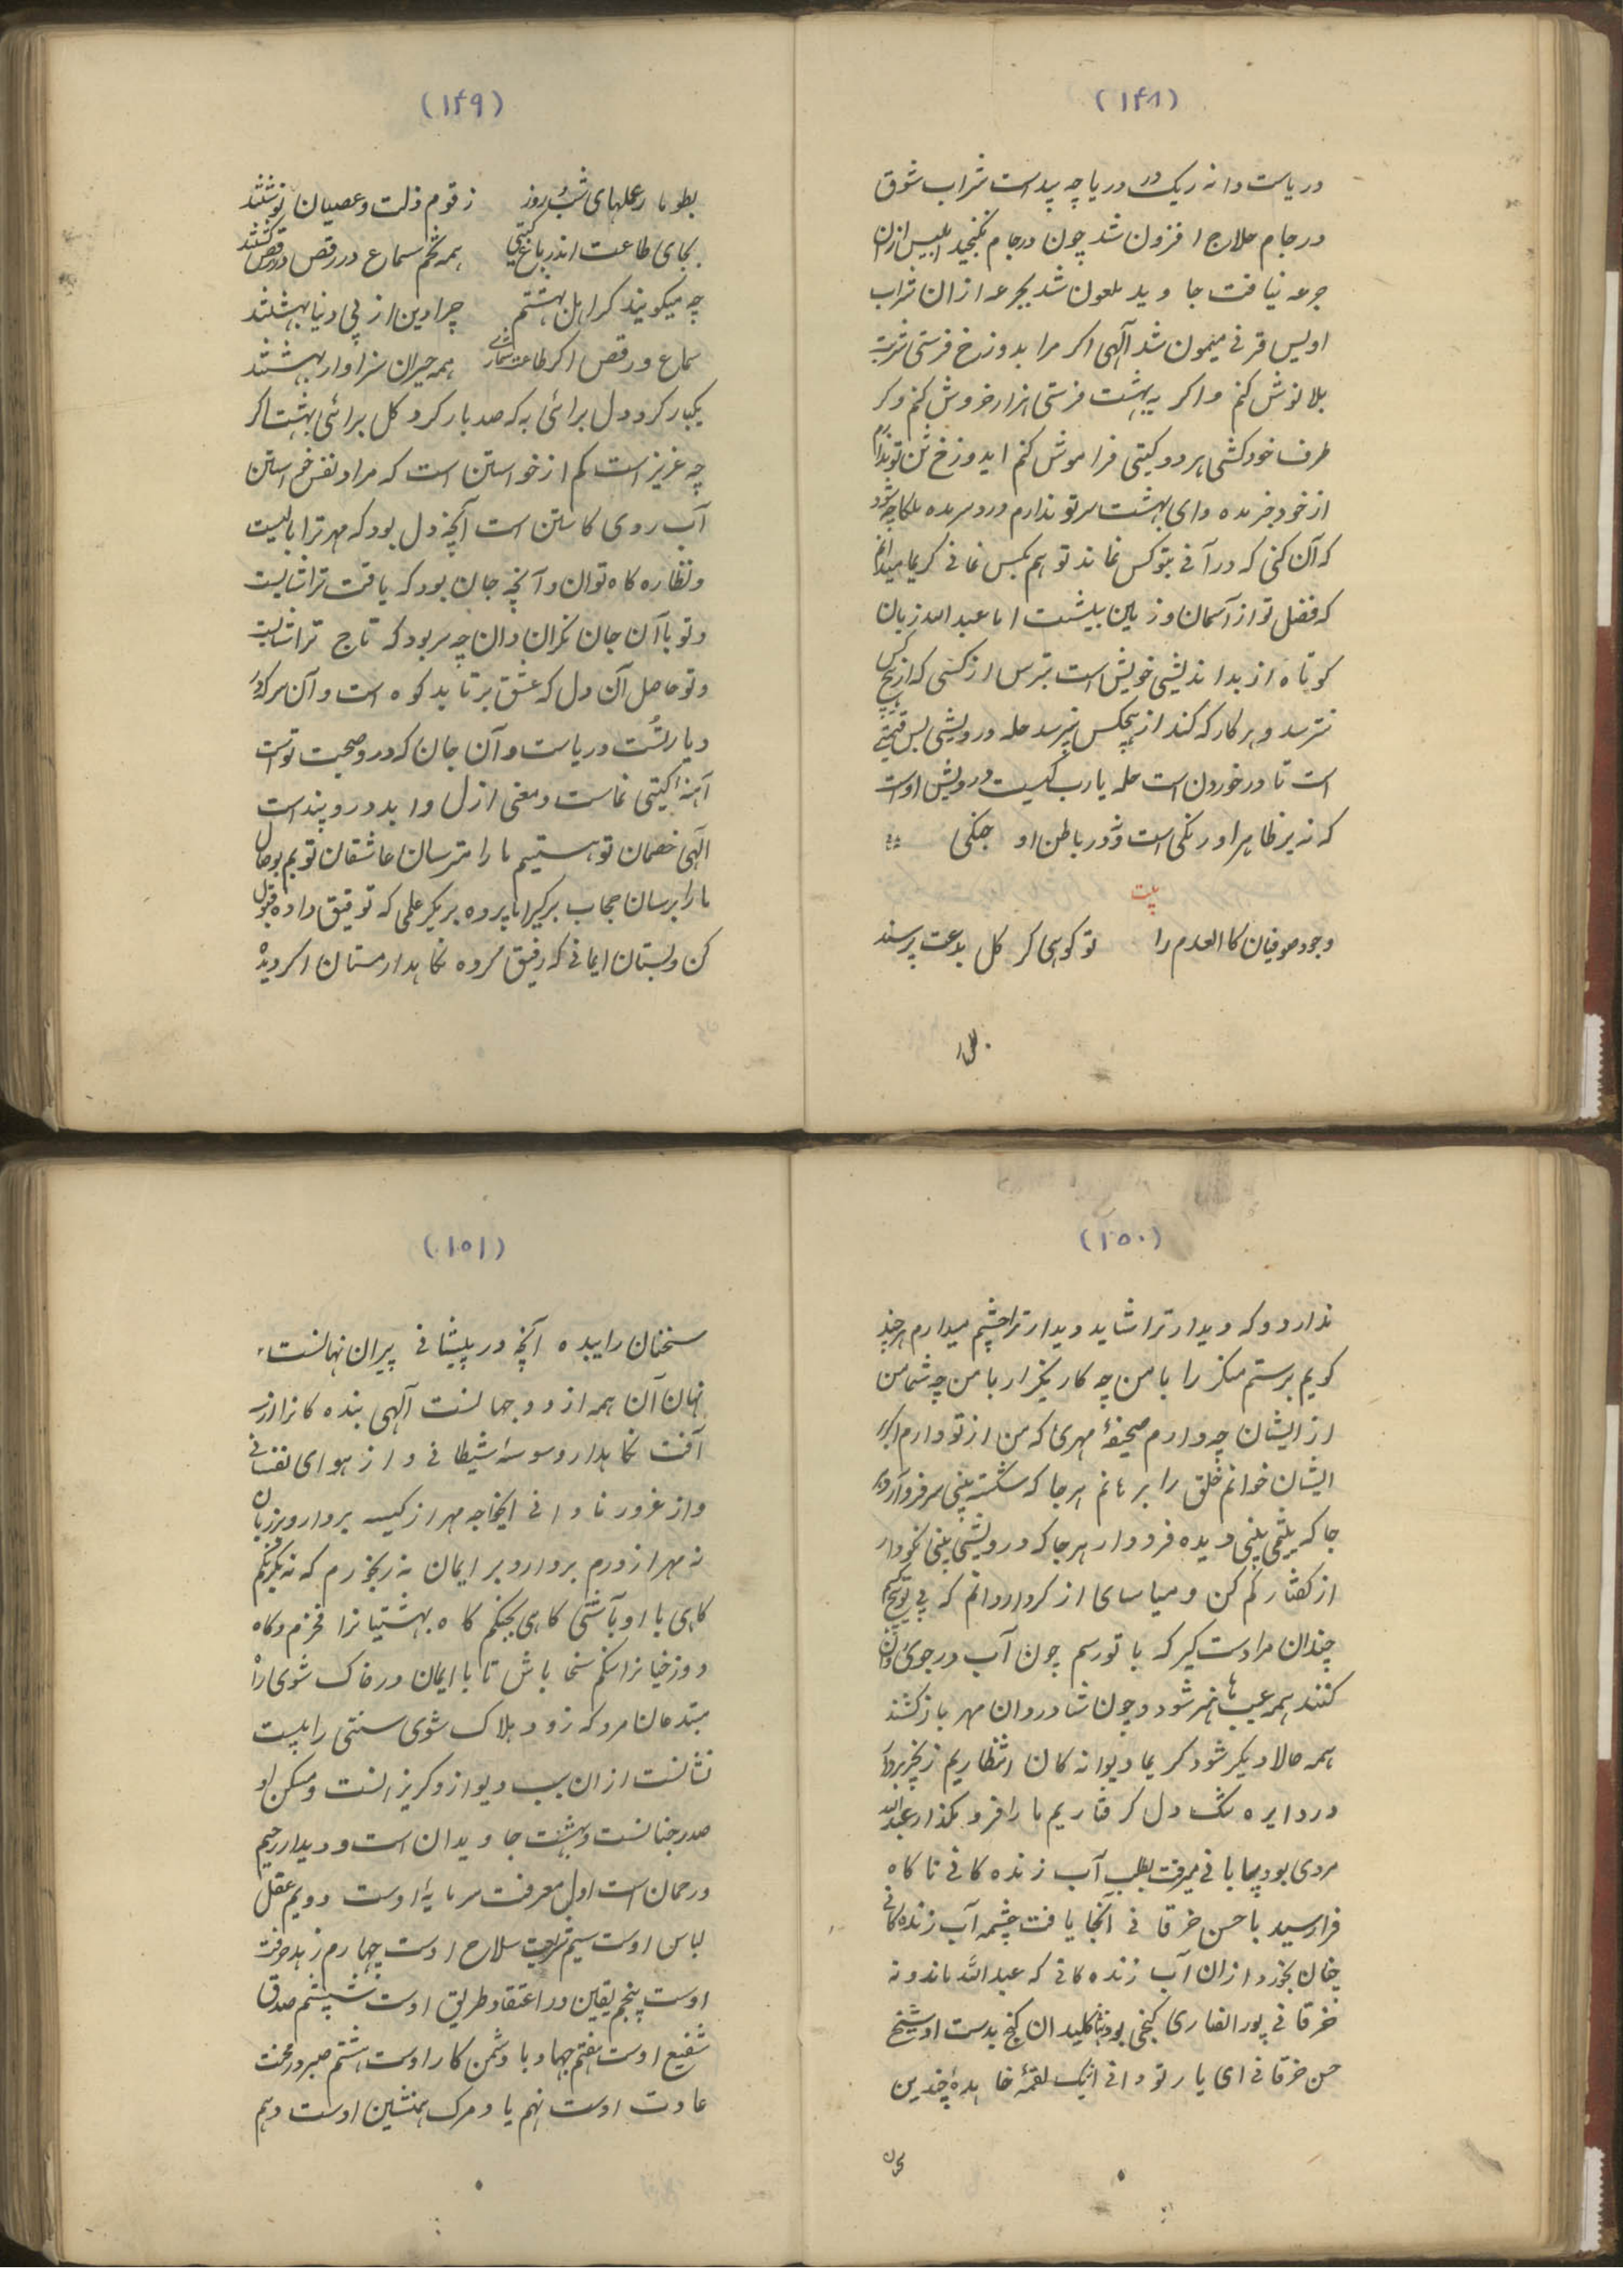 (۱۴۸)
دریاست دانه ریک در دریا چه پیداست شراب شوق
در جام حلاج افزون شد چون در جام نکنجید ابلیس ازان
جرعه نیافت جاوید ملعون شد بجرعه ازان شراب
اویس قرنی میمون شد آلهی اکر مرا بدوزخ فرستی شربت
بلا نوش کنم و اکر به بهشت فرستی هزار خروش کنم و کر
طرف خود کشی هر دو کیتی فراموش کنم ایدوزخ تن تو ندارم
از خود خبر مده و ای بهشت سر تو ندارم درد سر مده ملکا چه شود
که آن کنی که در آنی بتو کس نماند تو هم بکس نمانی کریما میدانم
که فضل تو از آسمان و زمین بیشست اما عبدالله زبان
کوتاه از بداندیشی خویش است بترس از کسی که از هیچ کس
نترسد و هر کار که کند از هیچکس نپرسد حله درویشی بس قیمتی
است تا در خوردن است حله یارب کیست درویش اوست
که نه بر ظاهر او رنکی است و نه در باطن او جنکی
بیت
وجود صوفیان کالعدم را تو کوئی کر کل بدعت پرستند
(۱۴۹)
بطوما رعملهای شب و روز زقوم ذلت و عصیان نوشتند
بجای طاعت اندر باغ کیتی همه تخم سماع و در رقص کشتند
چه میکویند کر اهل بهشتیم چرا دین از پی دنیا بهشتند
سماع و رقص اکر طاعت شماری همه حیران سزاوار بهشتند
یکبار کرد دل برائی به که صد بار کرد کل برائی بهشت اکر
چه عزیز است کم از خواستن است که مراد نفس خواستن
آب روی کاستن است آنچه دل بود که مهر ترا بالیست
و نظاره کاه توان و آنچه جان بود که یافت ترا شایست
و تو با آن جان نکران و ان چه سر بود که تاج ترا شایست
و تو حاصل آن دل که عشق بر تابد کوه است و آن سر که
دیار تست دریاست و آن جان که در و صحبت تو است
آینه کیتی نماست و معنی ازل و ابد در و پنداست
الهی خصمان تو هستیم ما را مترسان عاشقان توییم بوصال
ما را برسان حجاب برکیر اما پرده بر مکیر علمی که توفیق داده قبول
کن و بستان ایمانی که رفیق کرده نکاهدار مستان اکر دیده
(۱۵۰)
ندارد و که دیدار ترا شاید دیدار ترا چشم میدارم هر چند
کویم برستم منکر را با من چه کار بکذار با من چه شما من
از ایشان چه دارم صحیفهٔ مهری که من از تو دارم اکر بر
ایشان خوانم خلق را برهانم هر جا که شکسته بینی سر فرو آر و هر
جا که یتیمی بینی دیده فرو دار هر جا که درویشی بینی نکو دار
از کفتار کم کن و میاسای از کردار دانم که بی تو هیچم
چندان مرا دست کیر که با تو رسم چون آب در جوی روان
کنند همه عیبها هنر شود و چون شادروان مهر باز کشند
همه حالا دیکر شود کریما دیوانه کان انتظاریم زنجیر بردار
در دایره تنک دل کرفتاریم ما را فرو مکذار عبدالله
مردی بود بیابانی میرفت بطلب آب زنده کانی ناکاه
فرا رسید با حسن خرقانی آنجا یافت چشمه آب زنده کانی
چنان بخورد ازان آب زنده کانی که عبدالله ماند و نه
خرقانی پور انصاری کنجی بود پنهان کلید ان کنج بدست او شیخ
حسن خرقانی ای یار تو دانی اینک لقمهٔ خایده چندین
(۱۵۱)
سخنان زاییده آنچه در پیشانی پیران نهانست
نهان آن همه از دو جهانست آلهی بنده کانرا از سه
آفت نکاهدار وسوسهٔ شیطانی و از هوای نفسانی
و از غرور نادانی ایخواجه مهر از کیسه بردار و بر زبان
نه مهر از درم بردار و بر ایمان نه
کاهی با او بآشتی کاهی بجنکم کاه بهشتیانرا فخرم و کاه
دوزخیانرا ننکم سخا باش تا با ایمان در خاک شوی راه
مبتدعان مرو که زود هلاک شوی سنتی را بیست
نشانست ازان سبب دیو ازو کریزانست و مسکن او
صدر جنانست و بهشت جاویدان است و دیدار رحیم
و رحمان است اول معرفت سرمایهٔ اوست دویم عقل
لباس اوست سیم شریعت سلاح اوست چهارم زهد حرفت
اوست پنجم یقین در اعتقاد و طریق اوست ششم صدق
شفیع اوست هفتم جهاد با دشمن کار اوست هشتم صبر در محنت
عادت اوست نهم یاد مرک همنشین اوست دهم